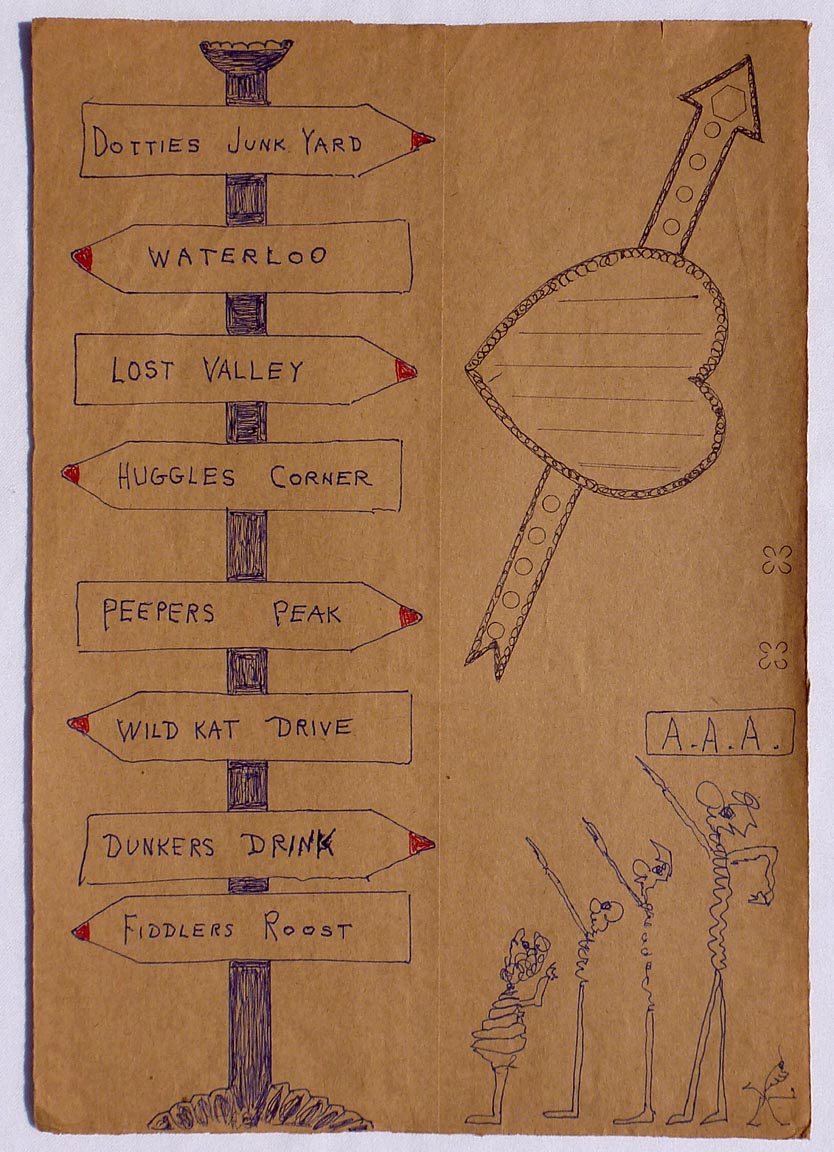 DOTTIES JUNK YARD
WATERLOO
LOST VALLEY
HUGGLES CORNER
PEEPERS PEAK
WILD KAT DRIVE
DUNKERS DRINK
FIDDLERS ROOST
A.A.A.